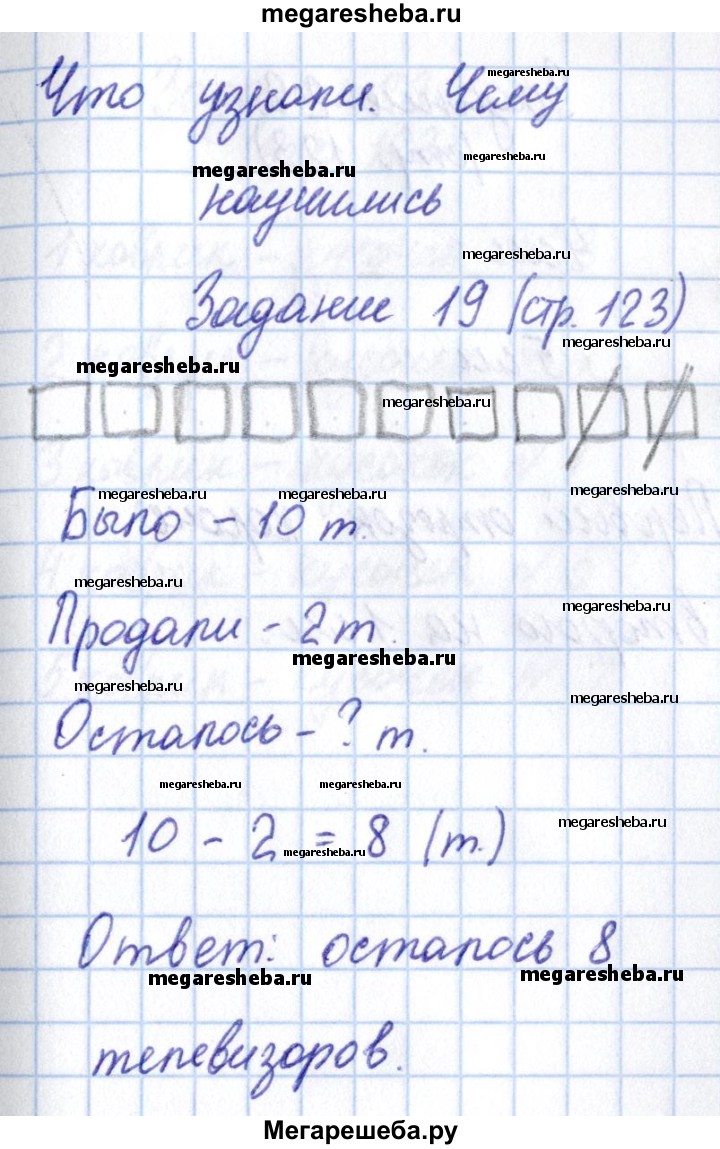 megaresheba.ru
Что узнали. Чему
megaresheba.ru
megaresheba.ru
megaresheba.ru
научились
megaresheba.ru
Задание 19 (стр. 123)
megaresheba.ru
megaresheba.ru
megaresheba.ru
megaresheba.ru megaresheba.ru megaresheba.ru
Было - 10 т.
megaresheba.ru
megaresheba.ru
Продали - 2 т.
megaresheba.ru
megaresheba.ru
megaresheba.ru
Осталось - ? т.
megaresheba.ru megaresheba.ru
megaresheba.ru
10 - 2 = 8 (т.)
megaresheba.ru
Ответ: осталось 8
megaresheba.ru megaresheba.ru
телевизоров.
Мегарешеба.ру